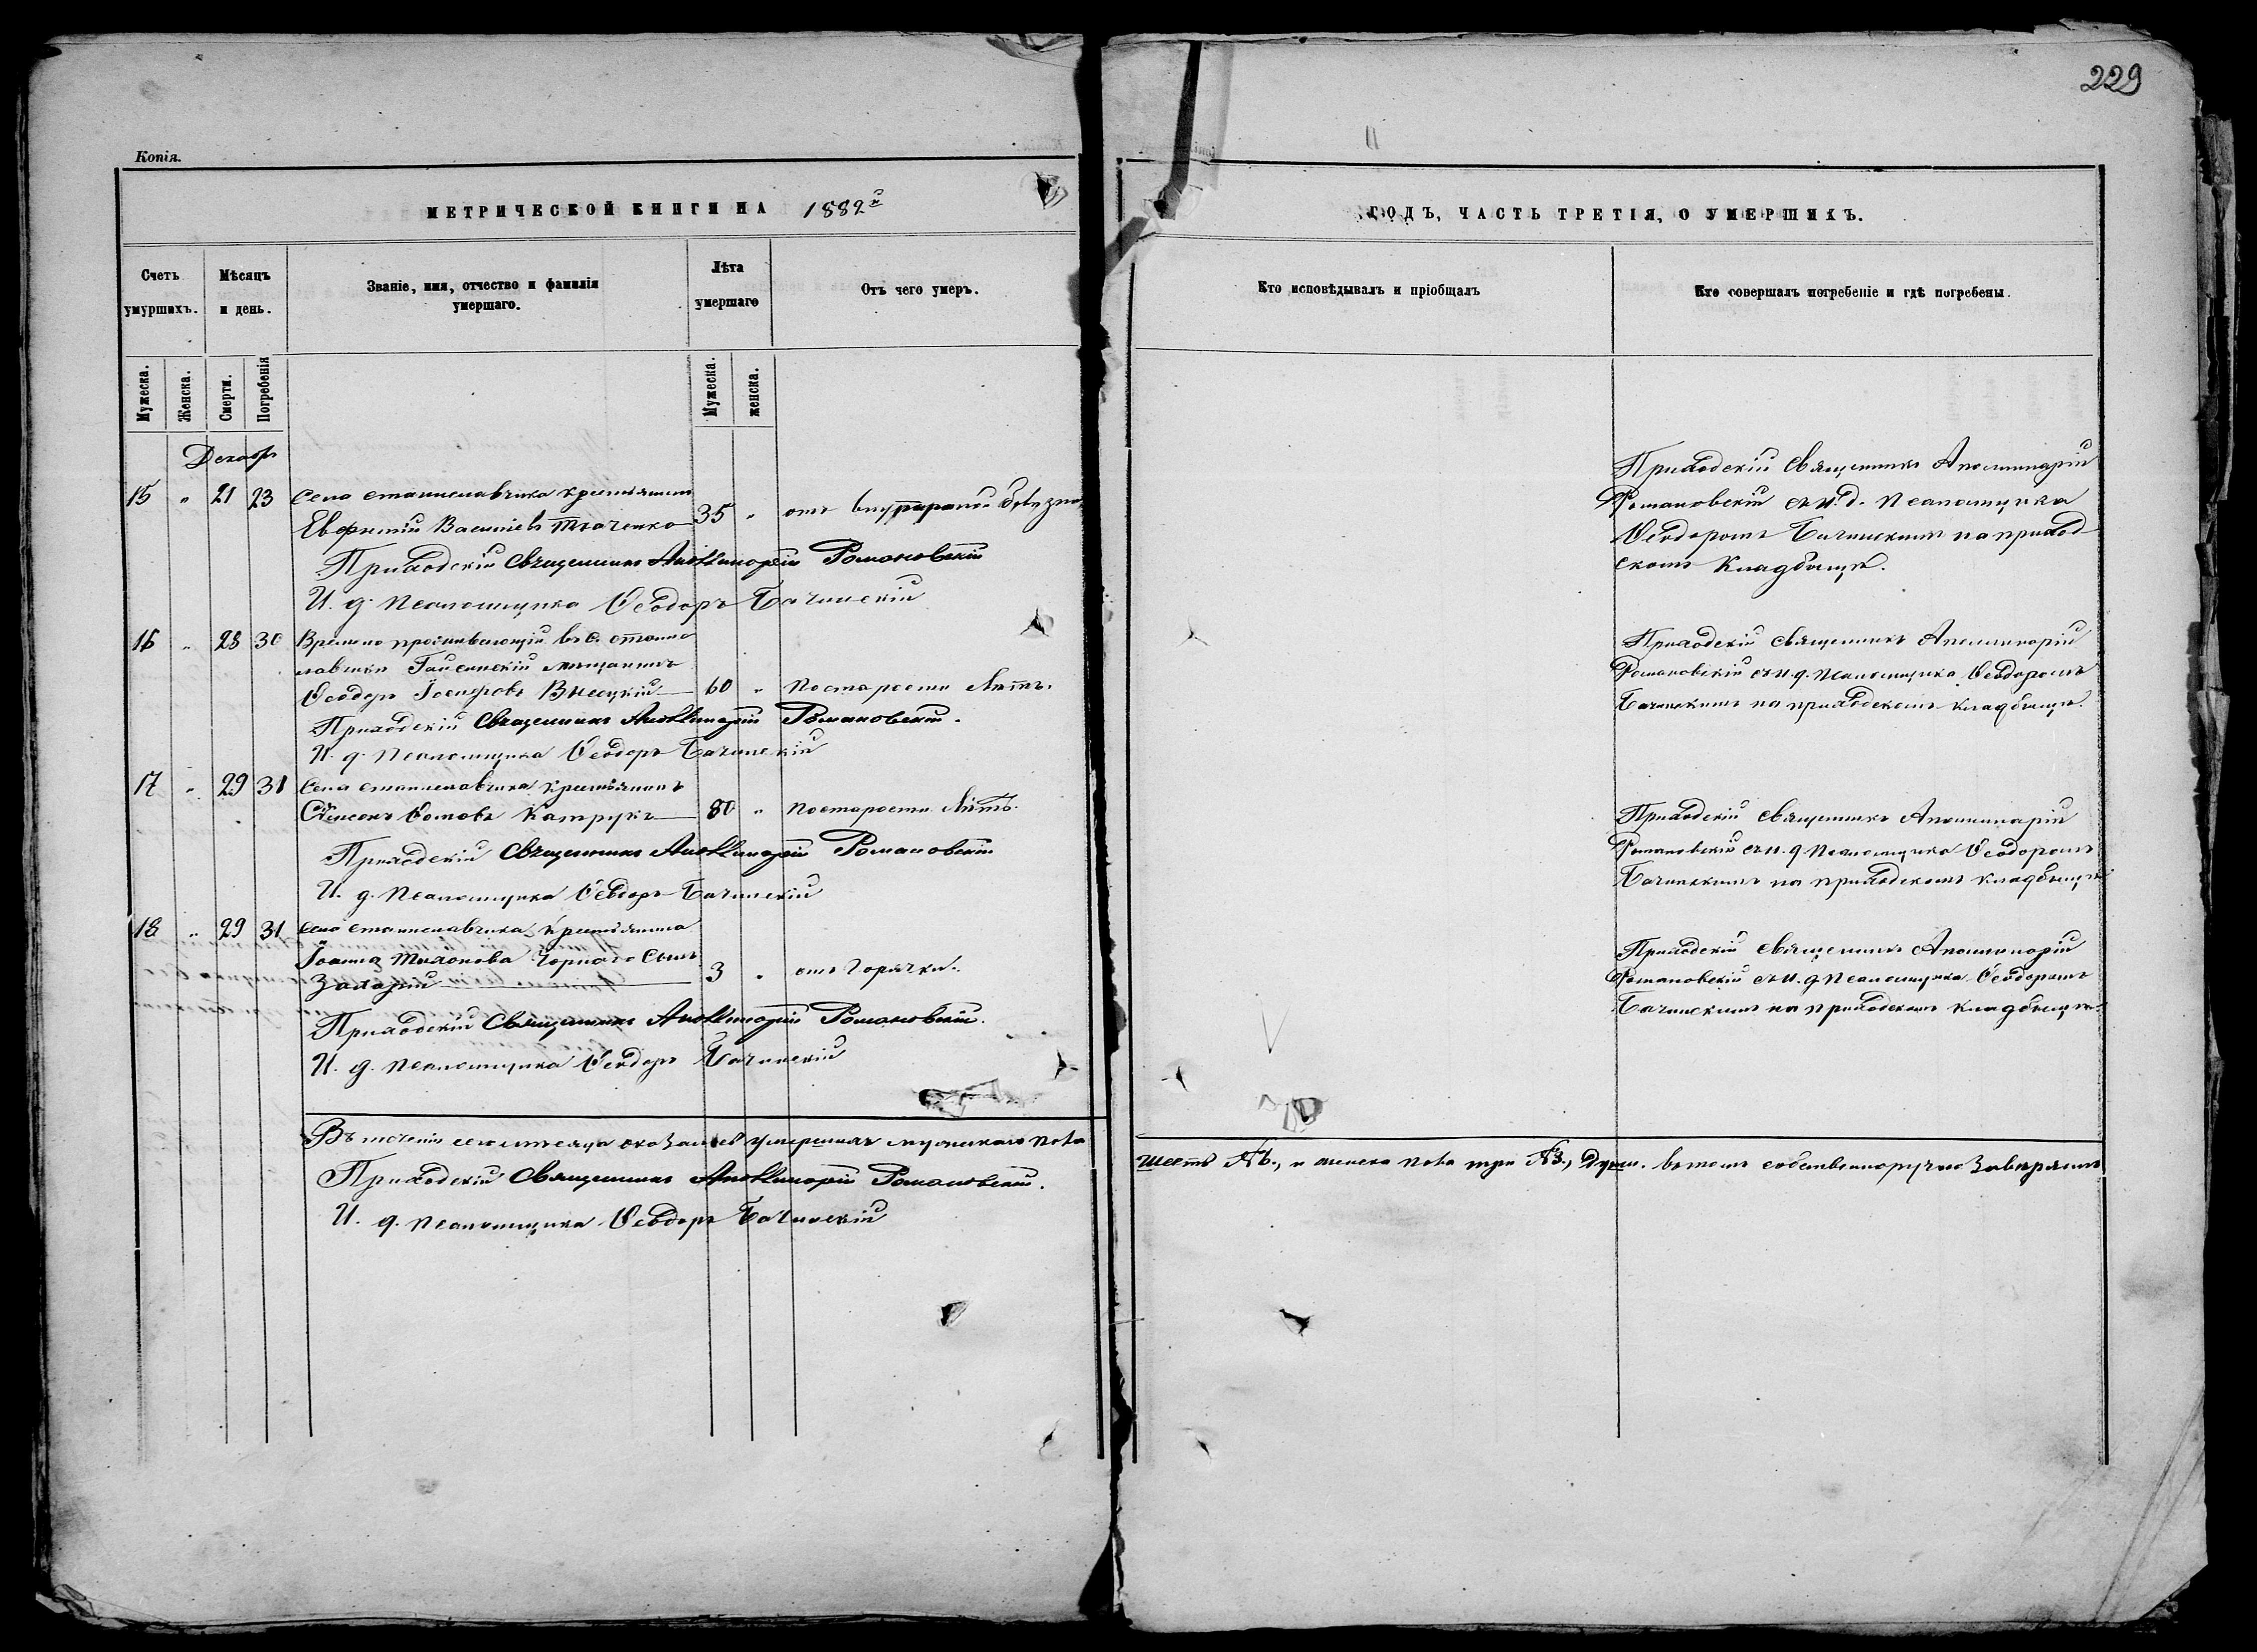 229
Копія.
МЕТРИЧЕСКОЙ КНИГИ НА 1882й
ГОДЪ, ЧАСТЬ ТРЕТІЯ, О УМЕРШИХЪ.
Счетъ умуршихъ.
Мѣсяцъ и день.
Званіе, имя, отчество и фамилія умершаго.
Лѣта умершаго
Отъ чего умеръ.
Кто исповѣдывалъ и пріобщалъ
Кто совершалъ погребеніе и гдѣ погребены.
Мужеска.
Женска.
Смерти.
Погребенія
Мужеска.
женска.
Декабр
15 " 21 23 Села Станиславчика крестьянин
Евфимій Васильевъ Ткаченко 35 " отъ внутренной болѣзни
Приходскій Священникъ Аполлинарій Романовскій
И. д. Псаломщика Ѳеодоръ Бачинскій
Приходскій Священникъ Аполлинарій
Романовскій съ И. д. Псаломщика
Ѳеодоромъ Бачинскимъ на приход-
скомъ Кладбищѣ.
16 " 28 30 Времено проживающій въ с. Станис
лавчики Гайсинскій мѣщанинъ
Ѳеодоръ Іосифовъ Высоцкій 60 " По старости Лѣтъ.
Приходскій Священникъ Аполлинарій Романовскій.
И. д. Псаломщика Ѳеодоръ Бачинскій
Приходскій Священникъ Аполлинарій
Романовскій съ И. д. Псаломщика Ѳеодоромъ
Бачинскимъ на приходскомъ кладбищѣ.
17 " 29 31 Села Станиславчика Крестьянинъ
Симеонъ Ѳомовъ Катрукъ 80 " По старости Лѣтъ.
Приходскій Священникъ Аполлинарій Романовскій
И. д. Псаломщика Ѳеодоръ Бачинскій
Приходскій Священникъ Аполлинарій
Романовскій съ И. д. Псаломщика Ѳеодоромъ
Бачинскимъ на приходскомъ кладбищѣ
18 " 29 31 Села Станиславчика Крестьянина
Іоанна Тихонова Сынъ
Захарій 3 " отъ Горячки.
Приходскій Священникъ Аполлинарій Романовскій.
И. д. Псаломщика Ѳеодоръ Бачинскій
Приходскій Священникъ Аполлинарій
Романовскій съ И. д. Псаломщика Ѳеодоромъ
Бачинскимъ на приходскомъ кладбищѣ.
Въ теченіе сего мѣсяца оказалось умершихъ мужескаго пола
шесть и женска пола три Душ. въ томъ собственноручно Завѣряемъ
Приходскій Священникъ Аполлинарій Романовскій.
И. д. Псаломщика Ѳеодоръ Бачинскій